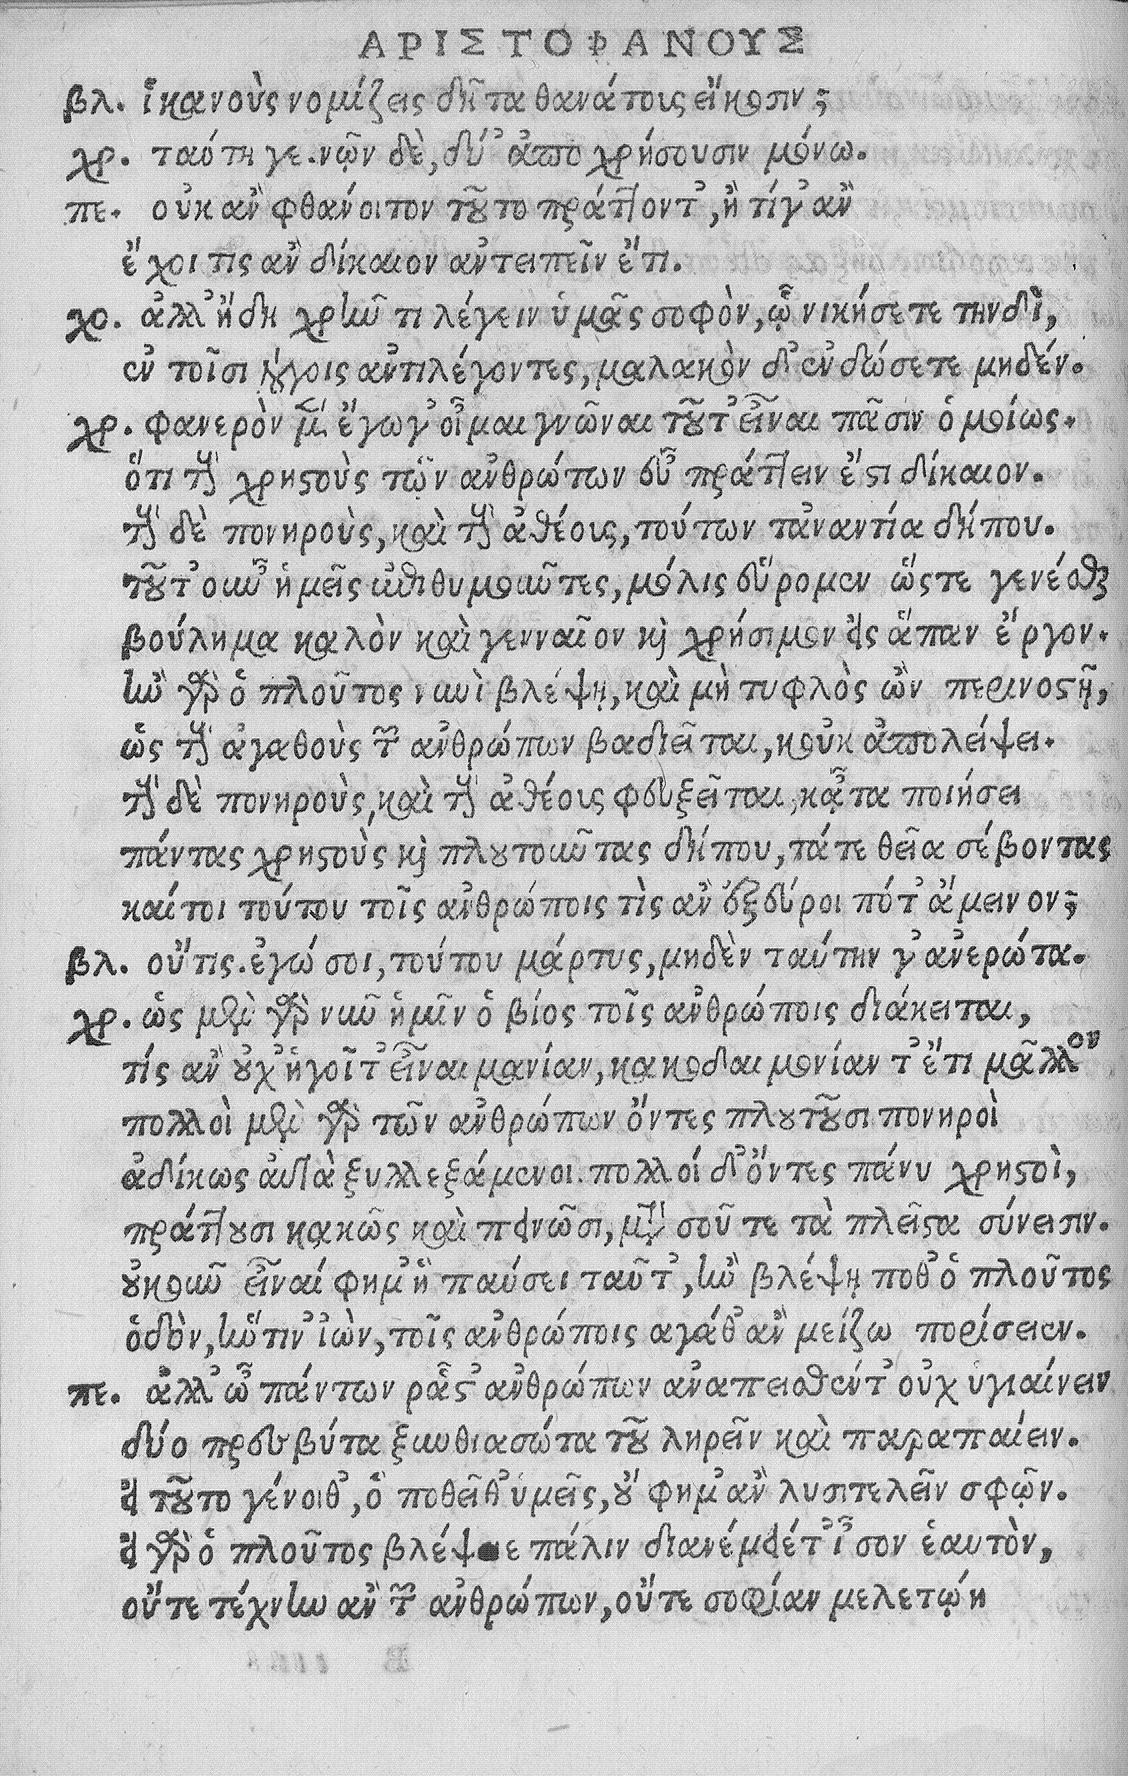 ΑΡΙΣΤΟΦΑΝΟΥΣ
βλ. ἱκανοὺς νομίζεις δῆτα θανάτοις εἴκοσιν;
χρ. ταύτῃ γε. νῷν δὲ, δύ' ἀποχρήσουσιν μόνω.
πε. οὐκ ἂν φθάνοιτον τοῦτο πράττοντ', ἢ τί γ' ἂν
ἔχοι τις ἂν δίκαιον ἀντειπεῖν ἔτι.
χο. ἀλλ' ἤδη χρῆν τι λέγειν ὑμᾶς σοφὸν, ᾧ νικήσετε τηνδὶ,
ἐν τοῖσι λόγοις ἀντιλέγοντες, μαλακὸν δ' ἐνδώσετε μηδέν.
χρ. φανερὸν μὲν ἔγωγ' οἶμαι γνῶναι τοῦτ' εἶναι πᾶσιν ὁμοίως.
ὅτι τοὺς χρηστοὺς τῶν ἀνθρώπων εὖ πράττειν ἔστι δίκαιον.
τοὺς δὲ πονηροὺς, καὶ τοὺς ἀθέους, τούτων τἀναντία δήπου.
τοῦτ' οὖν ἡμεῖς ἐπιθυμοῦντες, μόλις εὕρομεν ὥστε γενέσθαι
βούλημα καλὸν καὶ γενναῖον καὶ χρήσιμον εἰς ἅπαν ἔργον.
ἢν γὰρ ὁ πλοῦτος νυνὶ βλέψῃ, καὶ μὴ τυφλὸς ὢν περινοστῇ,
ὡς τοὺς ἀγαθοὺς τῶν ἀνθρώπων βαδιεῖται, κοὐκ ἀπολείψει.
τοὺς δὲ πονηροὺς, καὶ τοὺς ἀθέους φευξεῖται, κᾆτα ποιήσει
πάντας χρηστοὺς καὶ πλουτοῦντας δήπου, τά τε θεῖα σέβοντας
καίτοι τούτου τοῖς ἀνθρώποις τὶς ἂν ἐξεύροι πότ' ἄμεινον;
βλ. οὔτις. ἐγώ σοι, τούτου μάρτυς, μηδὲν ταύτην γ' ἀνερώτα.
χρ. ὡς μὲν γὰρ νῦν ἡμῖν ὁ βίος τοῖς ἀνθρώποις διάκειται,
τίς ἂν οὐχ ἡγοῖτ' εἶναι μανίαν, κακοδαιμονίαν τ' ἔτι μᾶλλον
πολλοὶ μὲν γὰρ τῶν ἀνθρώπων ὄντες πλουτοῦσι πονηροὶ
ἀδίκως αὐτὰ ξυλλεξάμενοι. πολλοί δ' ὄντες πάνυ χρηστοὶ,
πράττουσι κακῶς καὶ πεινῶσι, μετὰ σοῦ τε τὰ πλεῖστα σύνεισιν.
οὐκοῦν εἶναί φημ' ἢ παύσει ταῦτ', ἢν βλέψῃ ποθ' ὁ πλοῦτος
ὁδὸν, ἥντιν' ἰὼν, τοῖς ἀνθρώποις ἀγάθ' ἂν μείζω πορίσειεν.
πε. ἀλλ' ὦ πάντων ῥᾷστ' ἀνθρώπων ἀναπεισθέντ' οὐχ ὑγιαίνειν
δύο πρεσβύτα ξυνθιασώτα τοῦ ληρεῖν καὶ παραπαίειν.
εἰ τοῦτο γένοιθ', ὃ ποθεῖθ' ὑμεῖς, οὔ φημ' ἂν λυσιτελεῖν σφῷν.
εἰ γὰρ ὁ πλοῦτος βλέψειε πάλιν διανέμειέτ' ἶσον ἑαυτὸν,
οὔτε τέχνην ἂν τῶν ἀνθρώπων, οὔτε σοφίαν μελετῴη